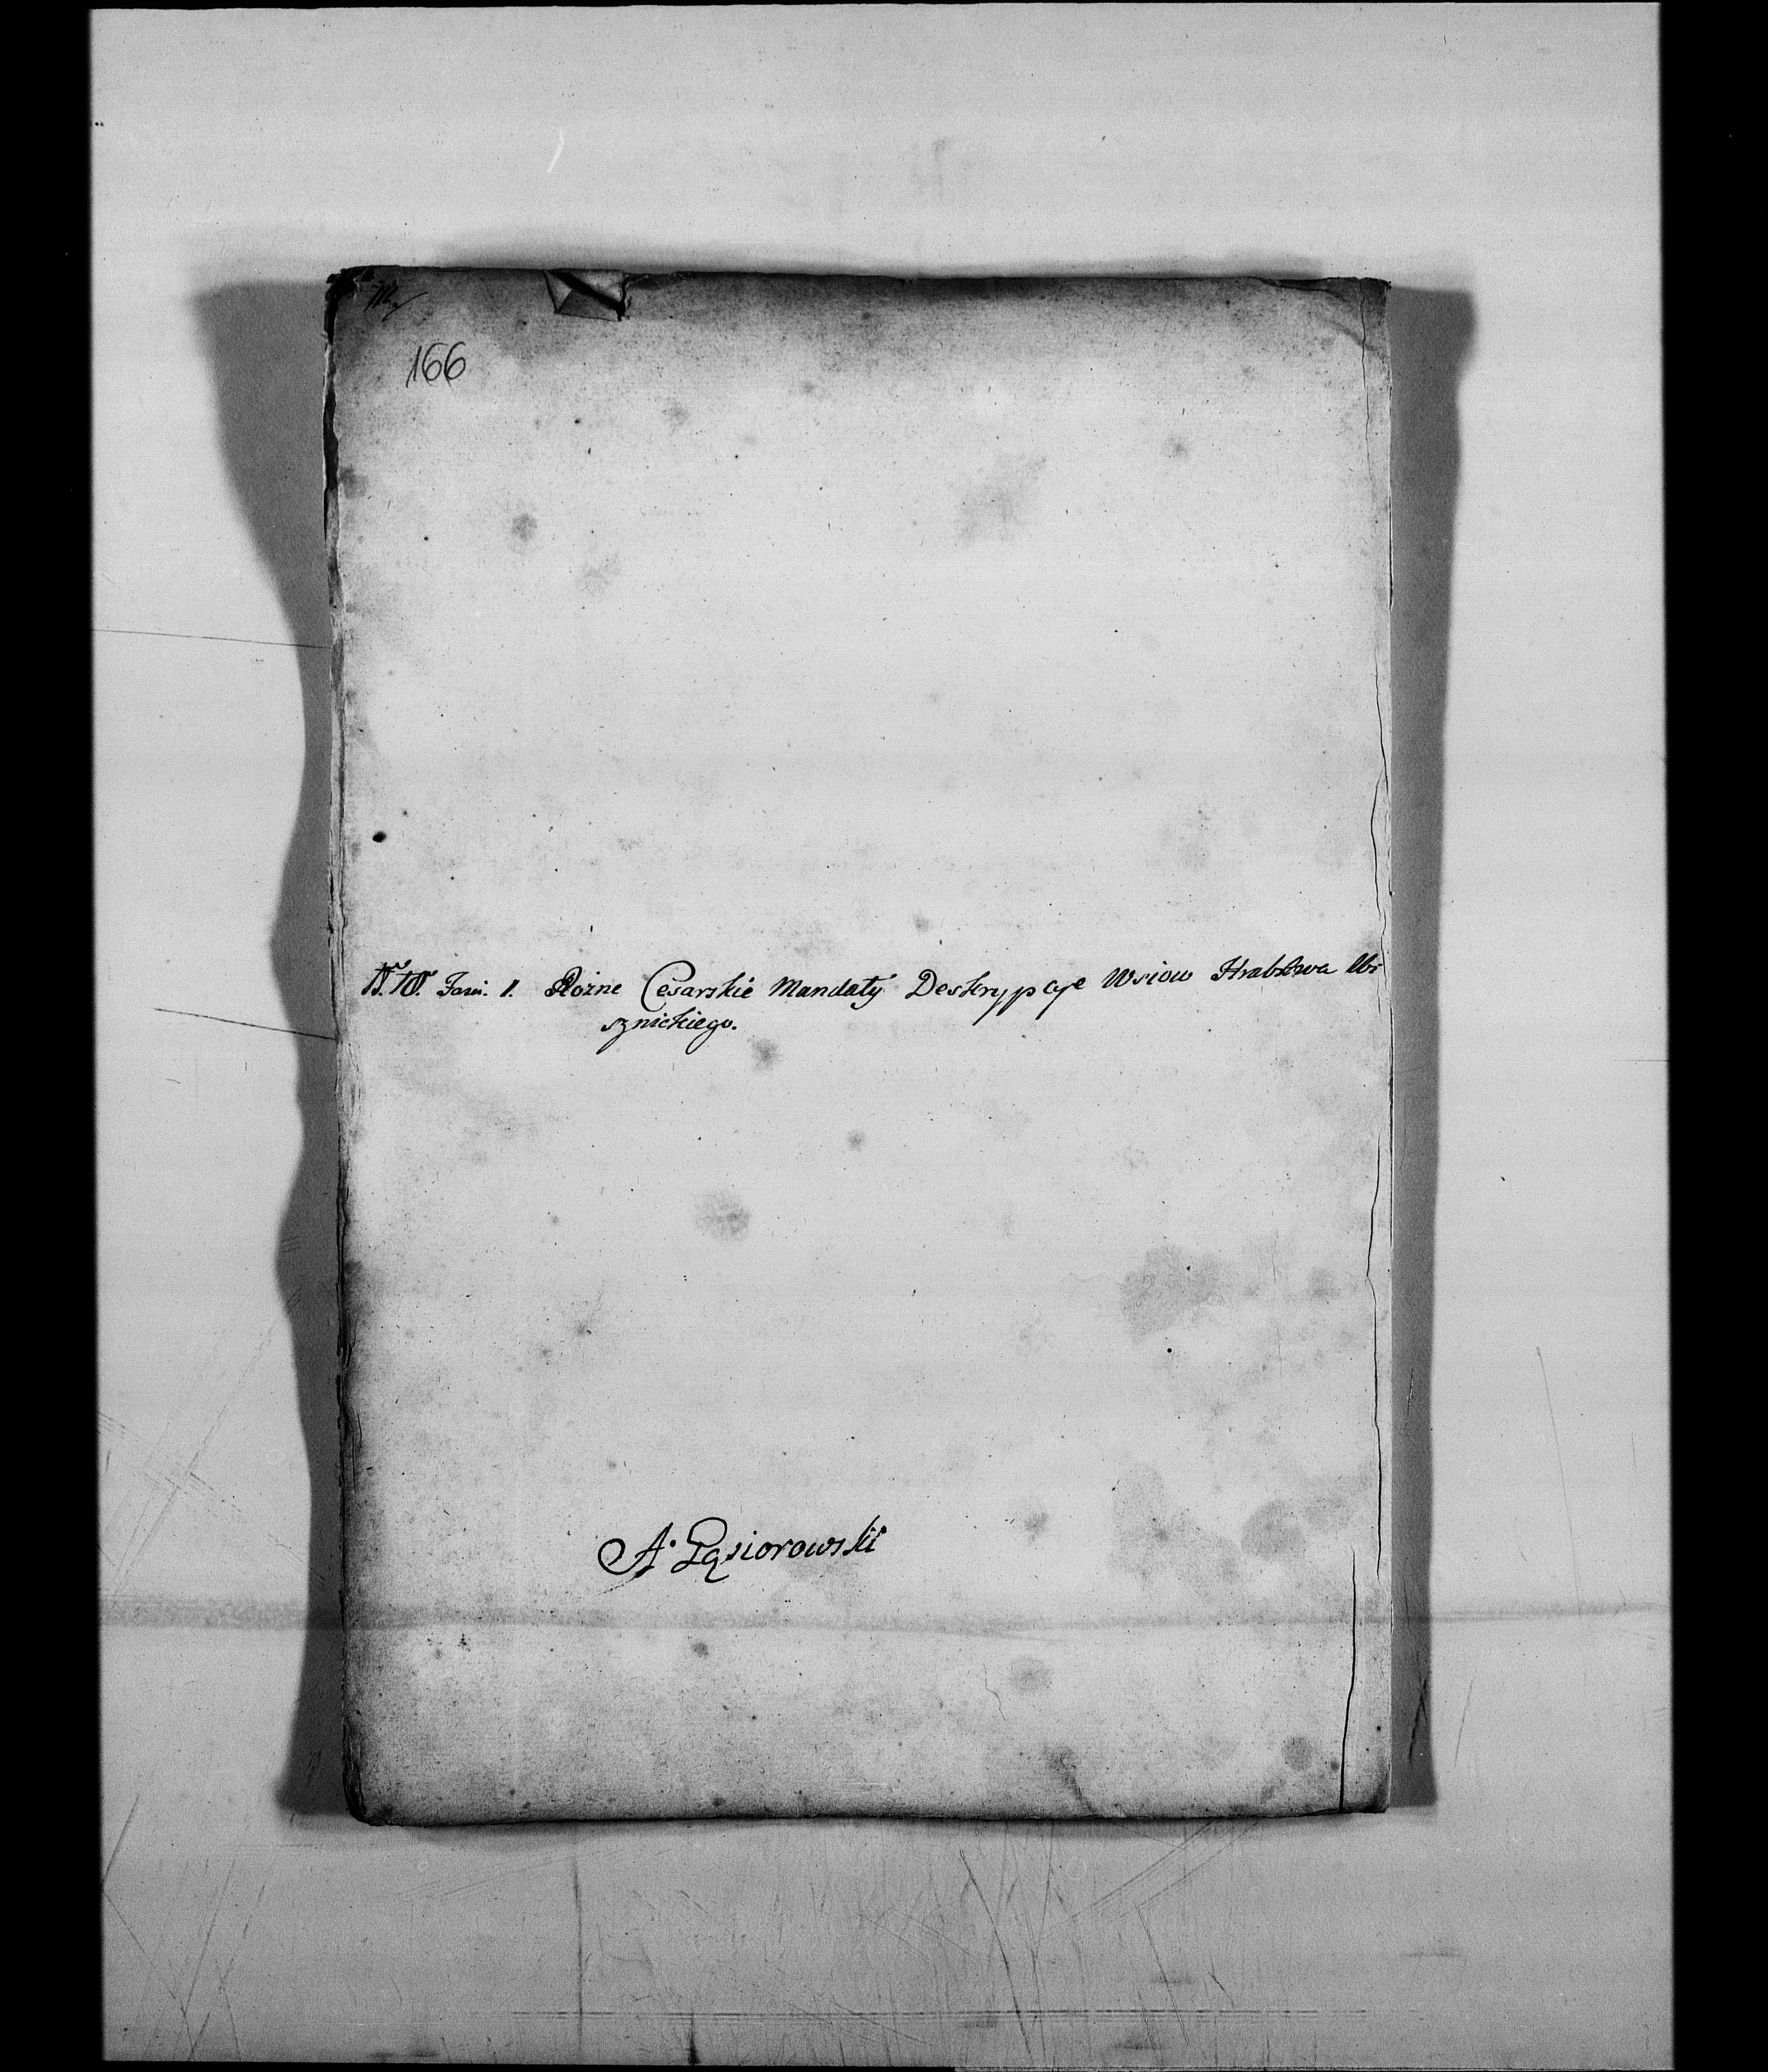 166
Fasci. 1. Rożne Cesarskie Mandaty Deskrypcye Wsiow Hrabstwa Wi
sznickiego.
A. Gąsiorowski